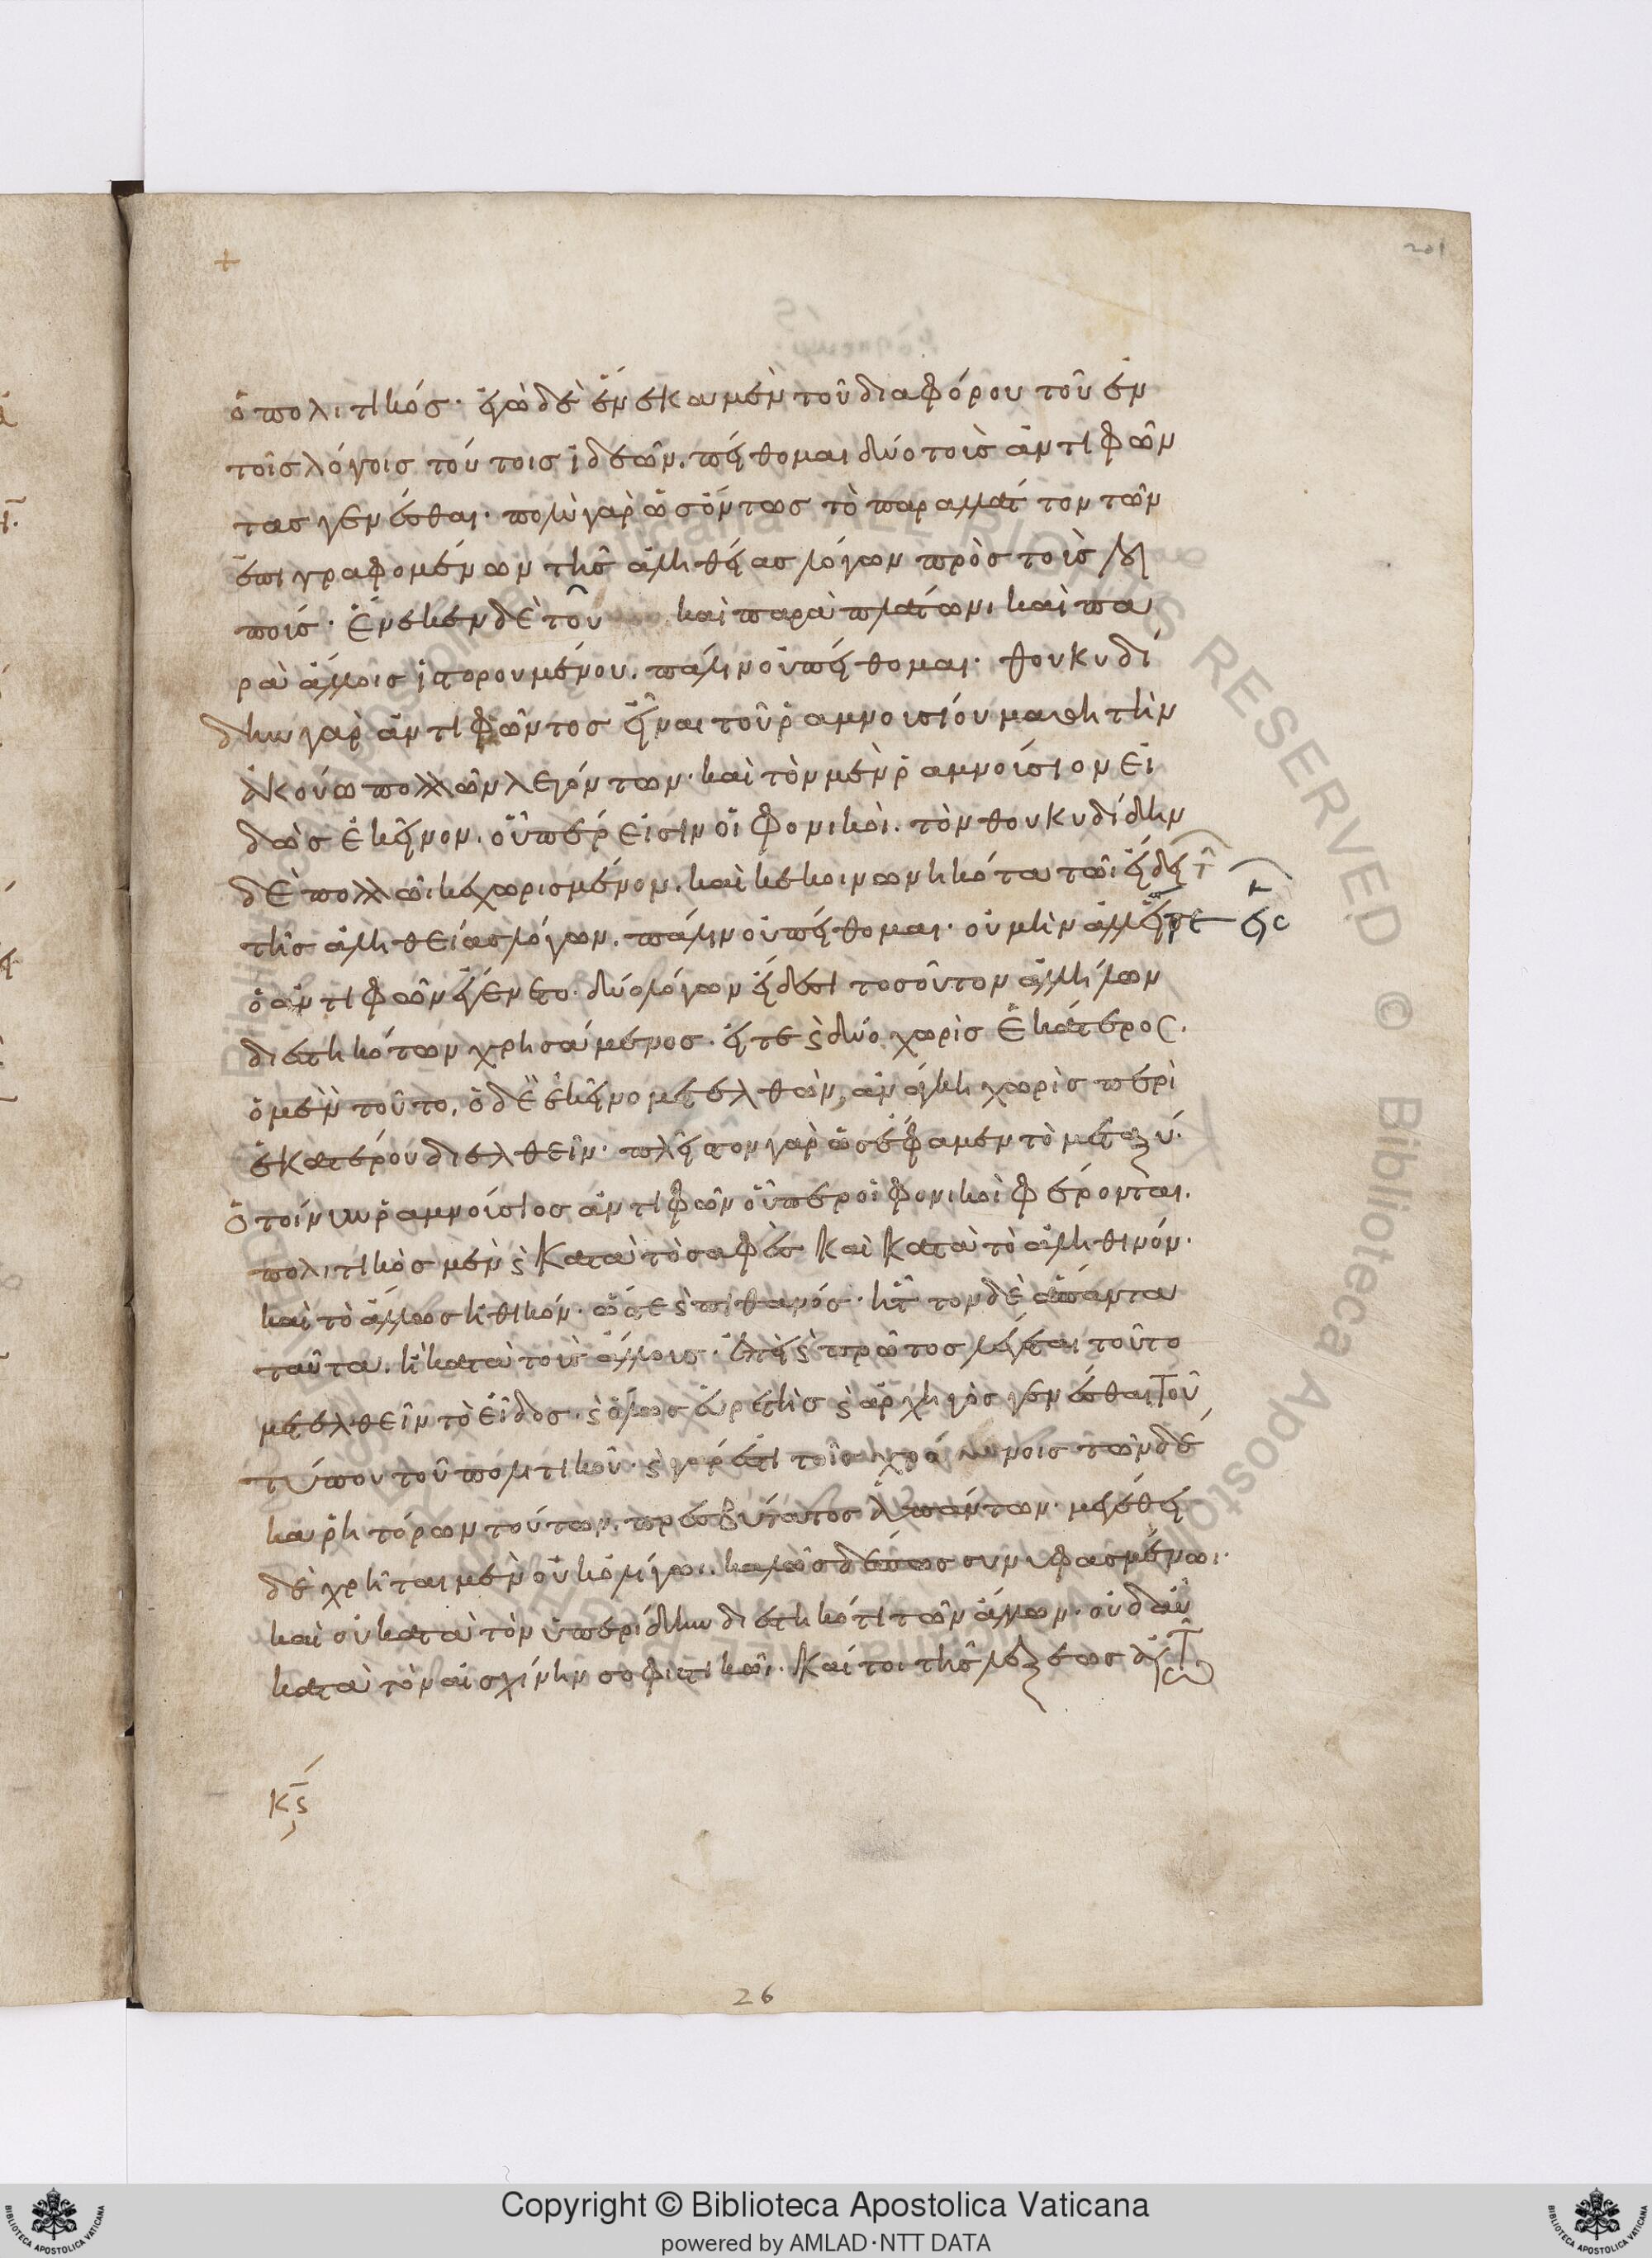 201
ὁ πολιτικός· ἐγὼ δὲ ἕνεκα μὲν τοῦ διαφόρου τοῦ ἐν
τοῖς λόγοις τούτοις ἰδεῶν. πείθομαι δύο τοὺς ἀντιφῶν
τας γενέσθαι· πολὺ γὰρ ὡς ὄντως τὸ παραλλάττον τῶν
ἐπιγραφομένων τῆς ἀληθείας λόγων πρὸς τοὺς λοι
πούς· ἕνεκεν δὲ τοῦ καὶ παρὰ πλάτωνι καὶ πα
ρὰ ἄλλοις ἱστορουμένου. πάλιν οὐ πείθομαι· θουκυδί
δην γὰρ ἀντιφῶντος εἶναι τοῦ ῥαμνουσίου μαθητὴν
ἀκούω πολλῶν λεγόντων· καὶ τὸν μὲν ῥαμνούσιον εἰ
δὼς ἐκεῖνον. οὗπέρ εἰσιν οἱ φονικοί. τὸν θουκυδίδην
δὲ πολλῷ κεχωρισμένον. καὶ κεκοινωνηκότα τῶι εἴδει τῶν
τῆς ἀληθείας λόγων. πάλιν οὐ πείθομαι· οὐ μὴν ἀλλ' εἴτε εἷς
ὁ ἀντιφῶν ἐγένετο. δύο λόγων εἴδεσι τοσοῦτον ἀλλήλων
διεστηκότων χρησάμενος. εἴτε καὶ δύο χωρὶς ἑκάτερος.
ὁ μὲν τοῦτο. ὁ δὲ ἐκεῖνο μετελθών, ἀνάγκη χωρὶς περὶ
ἑκατέρου διελθεῖν· πλεῖστον γὰρ ὡς ἔφαμεν τὸ μεταξύ.
ὁ τοίνυν ῥαμνούσιος ἀντιφῶν οὗπερ οἱ φονικοὶ φέρονται.
πολιτικὸς μὲν καὶ κατὰ τὸ σαφὲς καὶ κατὰ τὸ ἀληθινόν.
καὶ τὸ ἄλλως ἠθικόν. ὥστε καὶ πιθανός. ἧττον δὲ ἅπαντα
ταῦτα. ἢ κατὰ τοὺς ἄλλους· ἐπεὶ καὶ πρῶτος λέγεται τοῦτο
μετελθεῖν τὸ εἶδος. καὶ ὅλως εὑρετὴς καὶ ἀρχηγὸς γενέσθαι τοῦ
τύπου τοῦ πολιτικοῦ· καὶ γάρ ἐστι τοῖς χρόνοις τῶν δέ
κα ῥητόρων τούτων. πρεσβύτατος ἁπάντων· μεγέθει
δὲ χρῆται μὲν οὐκ ὀλίγωι. καλῶς δέ πως συνυφασμένωι.
καὶ οὐ κατὰ τὸν ὑπερίδην διεστηκότι τῶν ἄλλων. οὐδ' αὖ
κατὰ τὸν αἰσχίνην σοφιστικῶι. καίτοι τῆς λέξεως αὐτῶ
κϛ
26
Copyright © Biblioteca Apostolica Vaticana
powered by AMLAD·NTT DATA